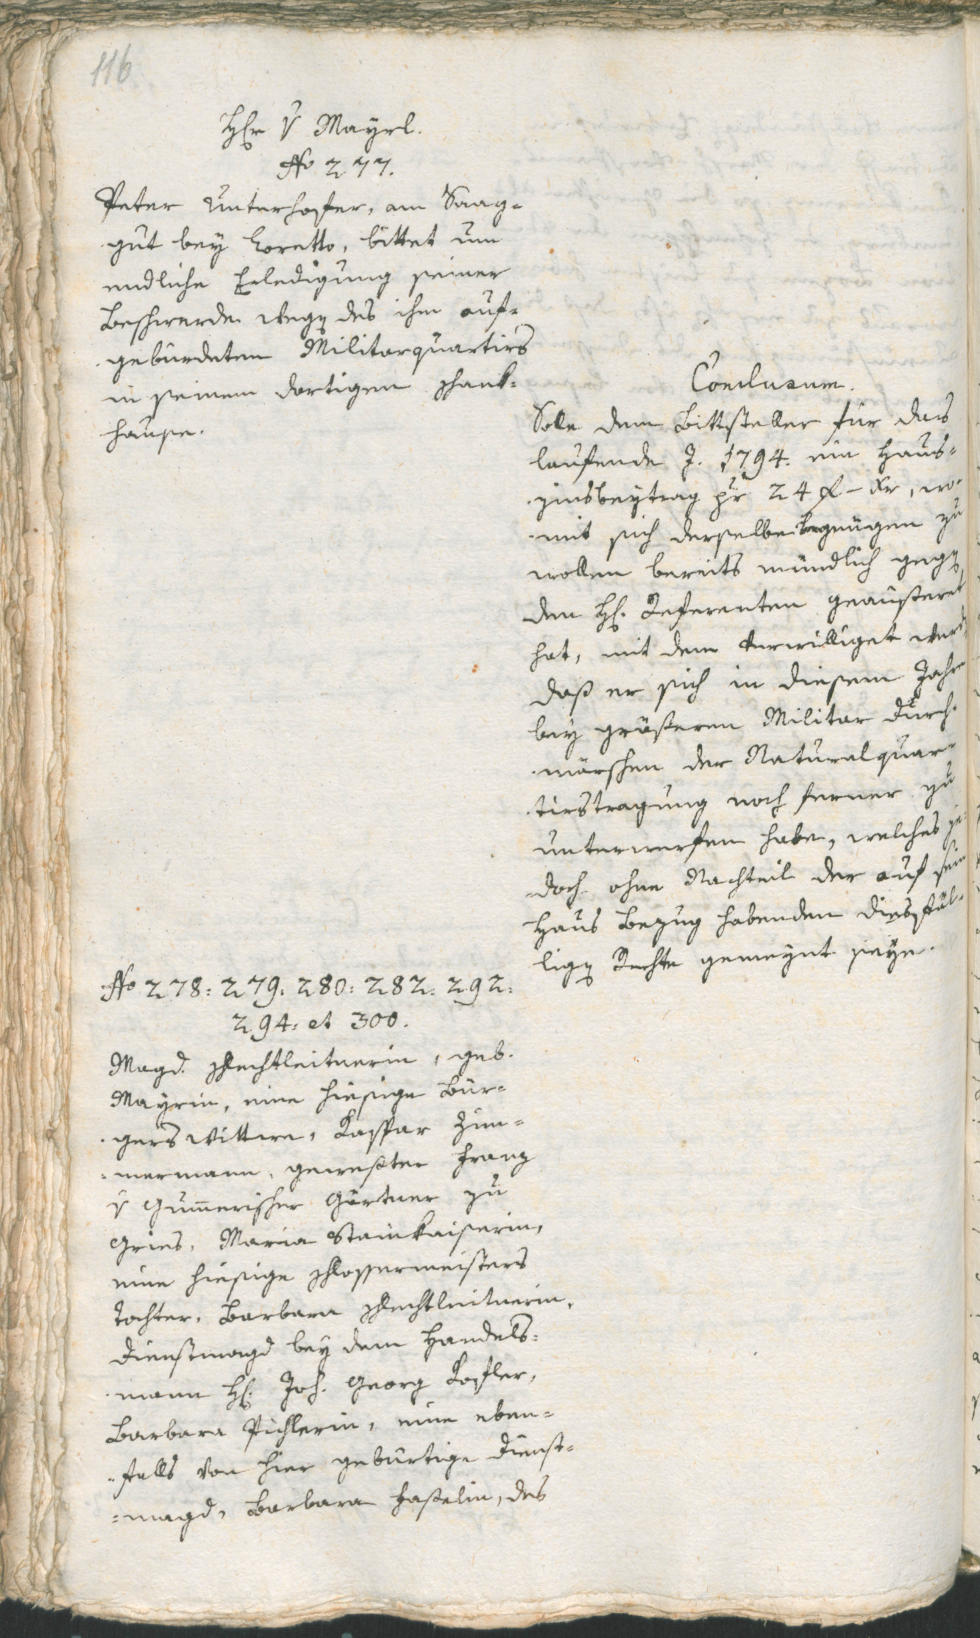 116
Hr v Mayrl.
No 277.
Peter Unterhofer, am Saag-
gut bey Loretto, bittet um
endliche Erledigung seiner
Beschwerde weg des ihm auf-
gebürdeten Militarquartirs
in seinem dortigen Schank-
hause.
Conclusum.
Solle dem Bittsteller für das
laufende J. 1794. ein Haus-
zinsbeytrag pr 24 f – Xr, wo-
mit sich derselbe begnügen zu
wollen bereits mündlich geg
den H. Referenten geäußeret
hat, mit dem verwilliget werd
daß er sich in diesem Jahre
bey größeren Militar Durch-
märschen der Naturalquar-
tirstragung noch ferner zu
unterwerfen habe, welches je-
doch ohne Nachteil der auf sein
Haus Bezug habenden diesfäl-
lig Rechte gemeynt seye.
No 278: 279. 280: 282: 292:
294: et 300.
Magd. Schlechtleitnerin, geb.
Mayrin, eine hiesige Bür-
gers Wittwe, Kaspar Zim-
mermann, gewester Franz
v Gummerischer Gärtner zu
Gries, Maria Stainkaiserin,
eine hiesige Schlossermeisters
Tochter, Barbara Schlechtleitnerin,
Dienstmagd bey dem Handels-
mann H. Joh. Georg Kofler,
Barbara Pichlerin, eine eben-
falls von hier gebürtige Dienst-
magd, Barbara Haßelin, des